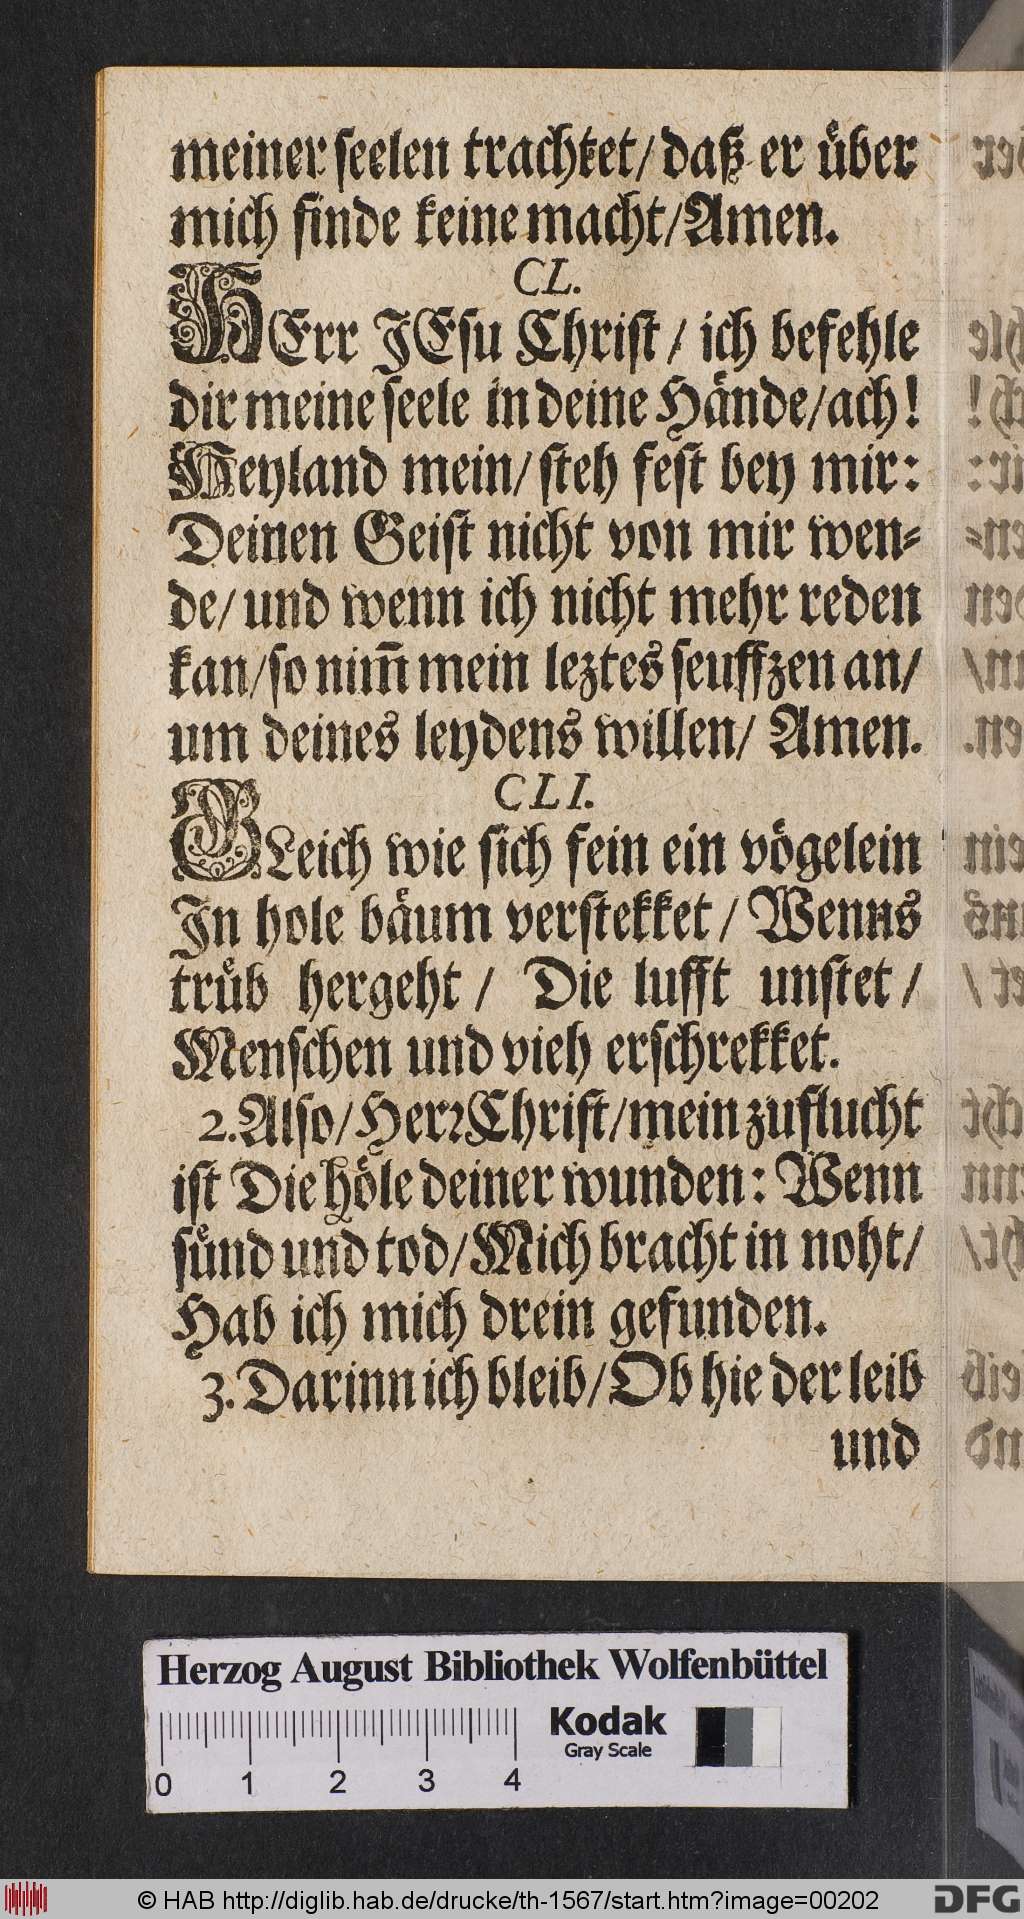 meiner seelen trachtet/ daß er über
mich finde keine macht/ Amen.
CL.
HErr JEsu Christ/ ich befehle
dir meine seele in deine Hände/ ach!
Heyland mein/ steh fest bey mir:
Deinen Geist nicht von mir wen-
de/ und wenn ich nicht mehr reden
kan/ so nim̅ mein leztes seuffzen an/
um deines leydens willen/ Amen.
CLI.
GLeich wie sich fein ein vögelein
In hole bäum verstekket/ Wenns
trüb hergeht/ Die lufft unstet/
Menschen und vieh erschrekket.
2. Also/ Herr Christ/ mein zuflucht
ist Die höle deiner wunden: Wenn
sünd und tod/ Mich bracht in noht/
Hab ich mich drein gefunden.
3. Darinn ich bleib/ Ob hie der leib
und
Herzog August Bibliothek Wolfenbüttel
Kodak
Gray Scale
0 1 2 3 4
© HAB http://diglib.hab.de/drucke/th-1567/start.htm?image=00202
DFG